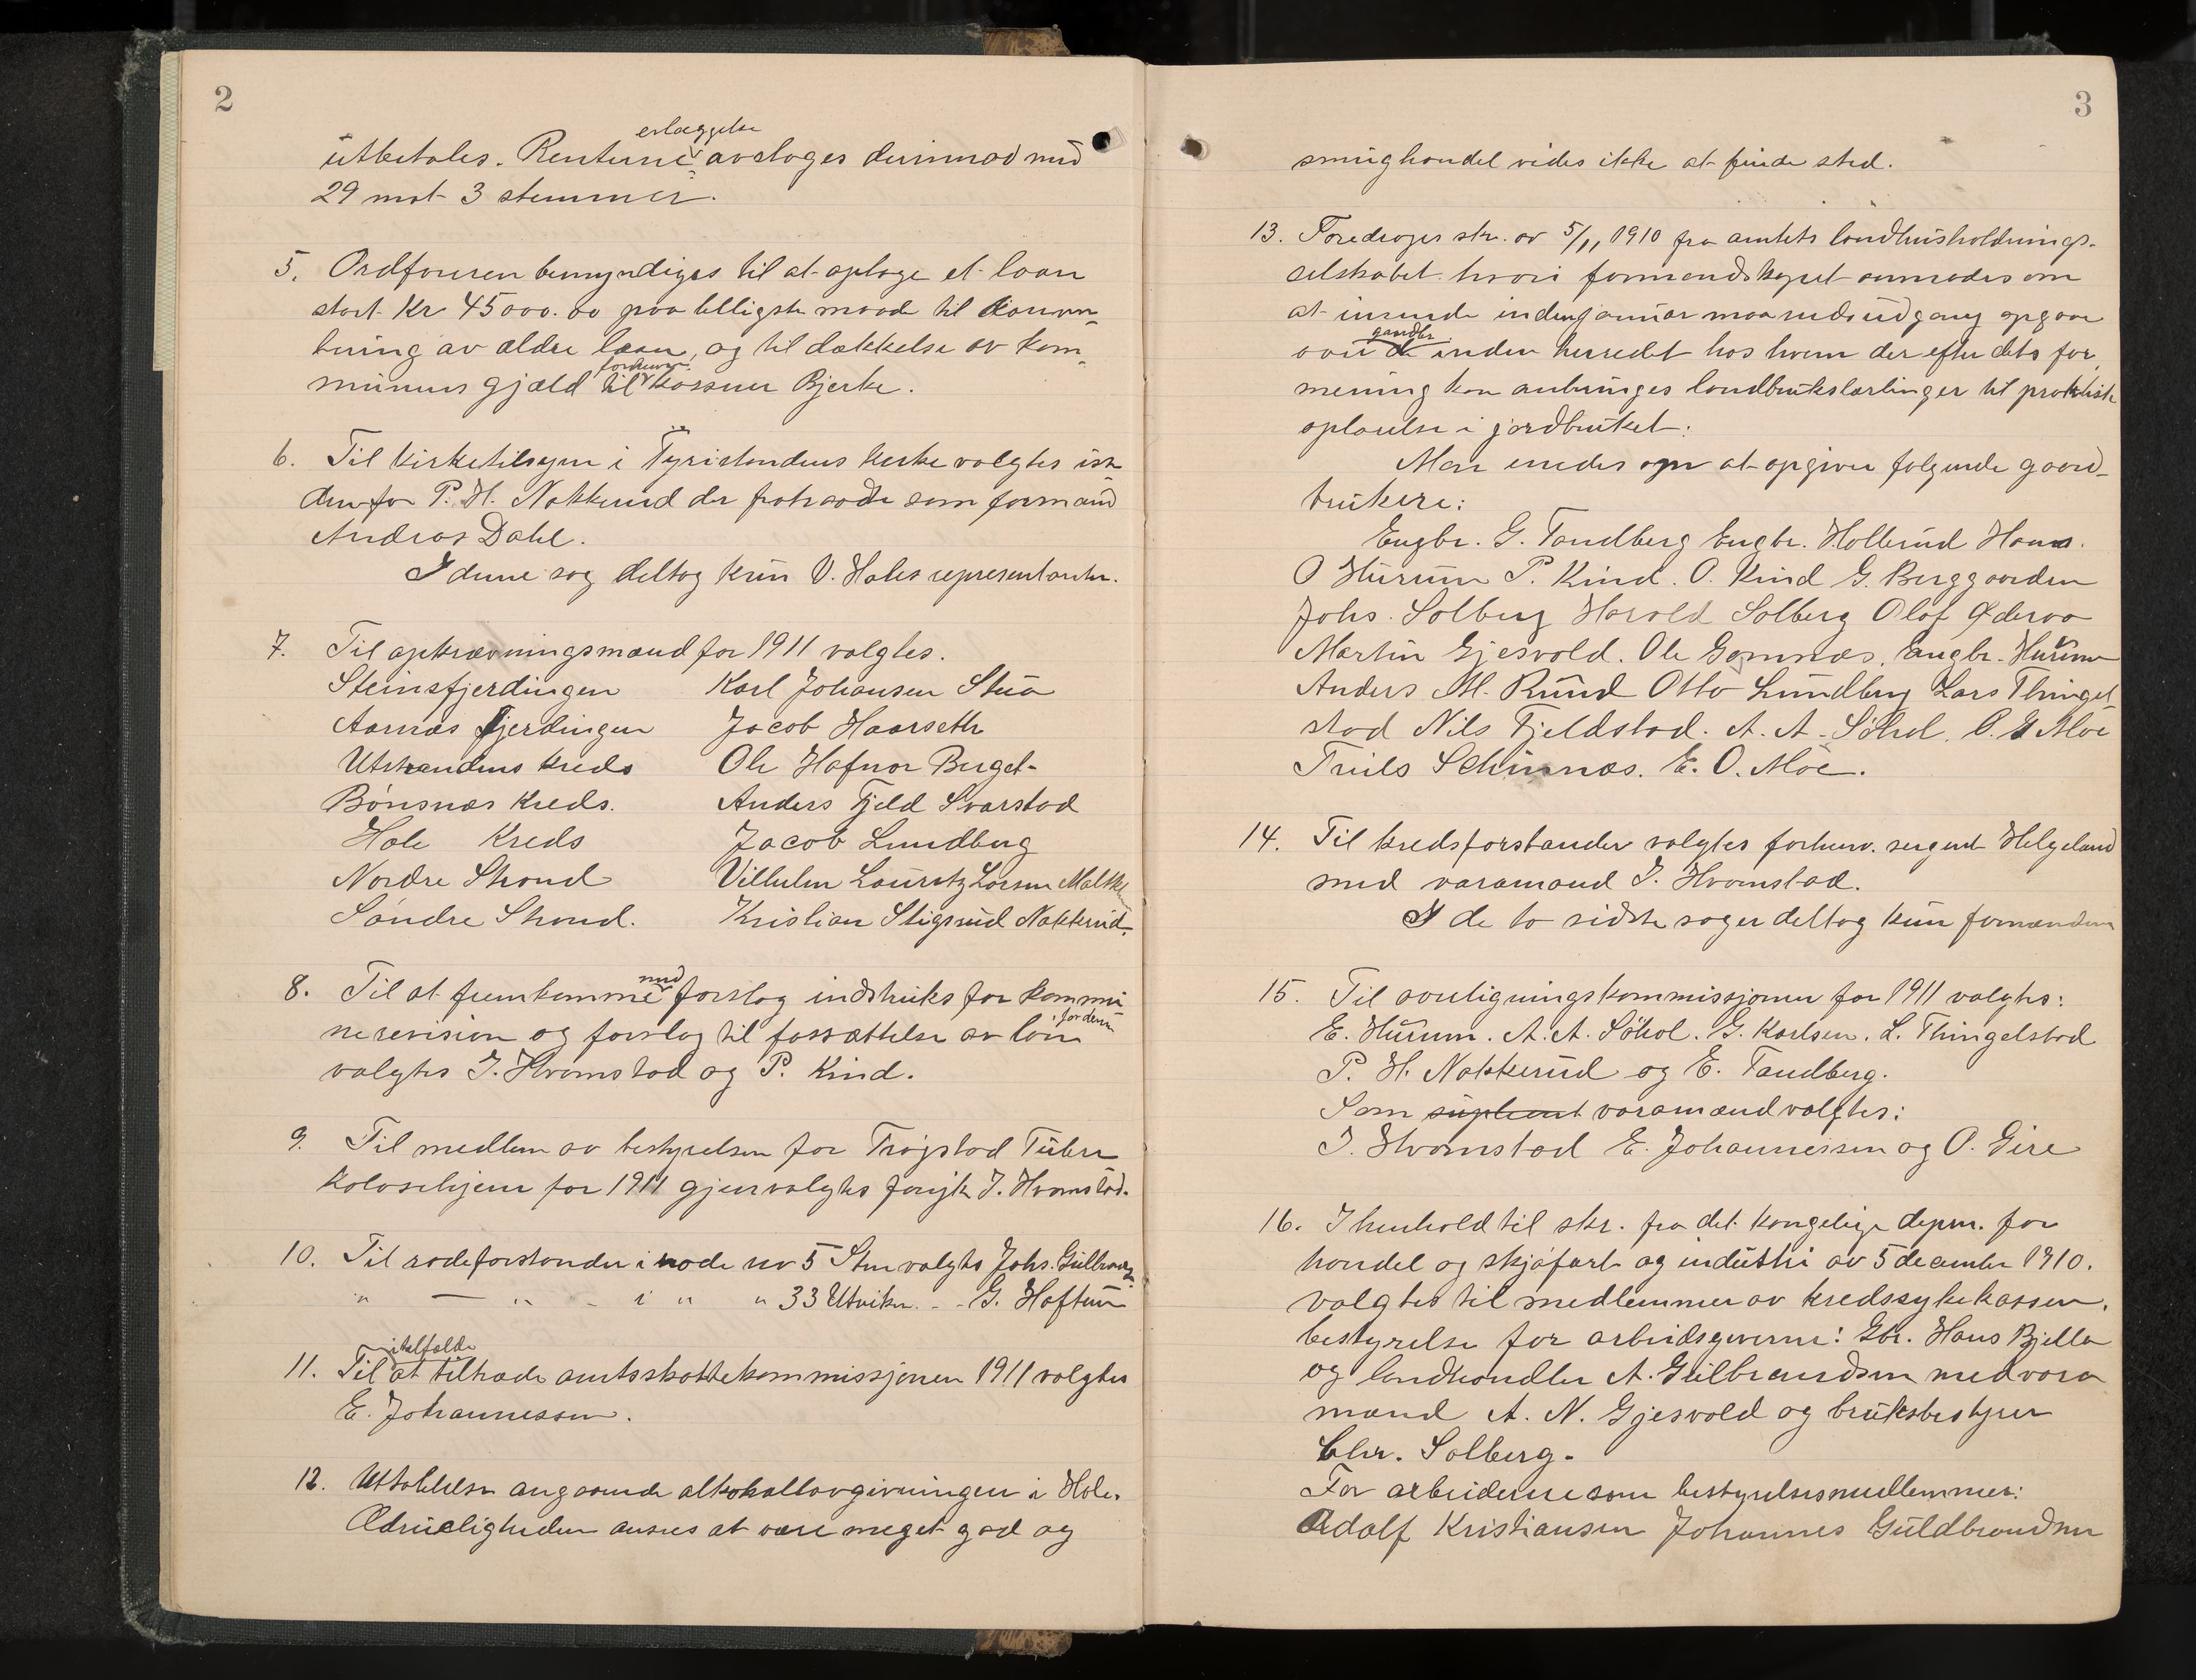 2
erlæggelse
utbetales. Renterne avslages derimod med
29 mot 3 stemmer.
5. Ordføreren bemyndiges til at optage et laan
stort Kr 45000.00 paa billigste maade til konver-
tering av ældre laan, og til dækkelse av kom-
forhenv.
munens gjæld til kasserer Bjerke.
6. Til kirketilsyn i Tyristrandens kirke valgtes iste-
denfor P. H. Nakkerud der fratraadte som formand
Andreas Dahl.
I denne sag deltog kun V. Holes representanter.
7. Til opkrævningsmænd for 1911 valgtes.
Steinsfjerdingen Karl Johansen Stua
Aarnæs fjerdingen Jacob Haarseth
Utstrandens kreds Ole Hafnor Berget
Bønsnæs Kreds. Anders Fjeld Svarstad
Hole Kreds Jacob Lundberg
Nordre Strand Vilhelm Lauritz Larsen
Søndre Strand. Kristian Stigsrud Nakkerud.
8. Til at fremkomme med forslag indstruks for kommu-
for denne
nerevision og forslag til fastsættelse av løn
valgtes J. Hvamstad og P. Kind.
9. Til medlem av bestyrelsen for Trøgstad Tuber
kolosehjem for 1911 gjenvalgtes frøjk J. Hvamstad.
10. Til rodeforstander i rode nr 5 Sten valgtes Johs. Gulbrands
" — " - i " " 33 Utviken - - G. Haftun
itilfælde
11. Til at tiltræde amtsskattekommissjonen 1911 valgtes
E. Johannessen.
12. Uttalelse angaaende alkohollovgivningen i Hole.
Ædrueligheden ansees at være meget god og
3
smughandel vides ikke at finde sted.
13. Foredroges skr. av 5/11 1910 fra amtets landhusholdnings-
selskabet hvori formandskapet anmodes om
at insende inden januar maaneds udgang opgave
gaardbr
over de inden herredet hos hvem der efter dets for
mening kan anbringes landbrukslærlinger til praktisk
oplærelse i jordbruket:
Man enedes om at opgive følgende gaard-
brukere:
Engbr. G. Tandberg Engbr. Hollerud Hans.
O Hurum P. Kind. O. Kind G. Berggaarden
Johs. Solberg Harald Solberg Olaf Øderaa
Martin Gjesvold. Ole Gomnæs. Engbr. Hurum
Anders M. Ruud Otto Lundberg Lars Thingel-
stad Nils Fjeldstad. A. A. Søhol. O. G Moe
Truls Selinnæs. E. O. Moe.
14. Til kredsforstander valgtes forhenv. sergent Helgeland
med varamand J. Hvamstad.
I de to sidste sager deltog kun formænden
15. Til overligningskommissjonen for 1911 valgtes:
E. Hurum. A. A. Søhol. G. Karlsen. L. Thingelstad
P. H. Nakkerud og E. Tandberg.
Som supleant varamænd valgtes:
J. Hvamstad E. Johannessen og O. Gire
16. I henhold til skr. fra det kongelige deprm. for
handel og skjøfart og industri av 5 december 1910.
valgtes til medlemmer av kredssykekassen.
bestyrelse for arbeidsgiverne: Gbr. Hans Bjella
og landhandler A. Gulbrandsen med vara
mænd A. N. Gjesvold og bruksbestyrer
Chr. Solberg.
For arbeiderne som bestyrelsesmedlemmer:
Adolf Kristiansen Johannes Guldbrandsen